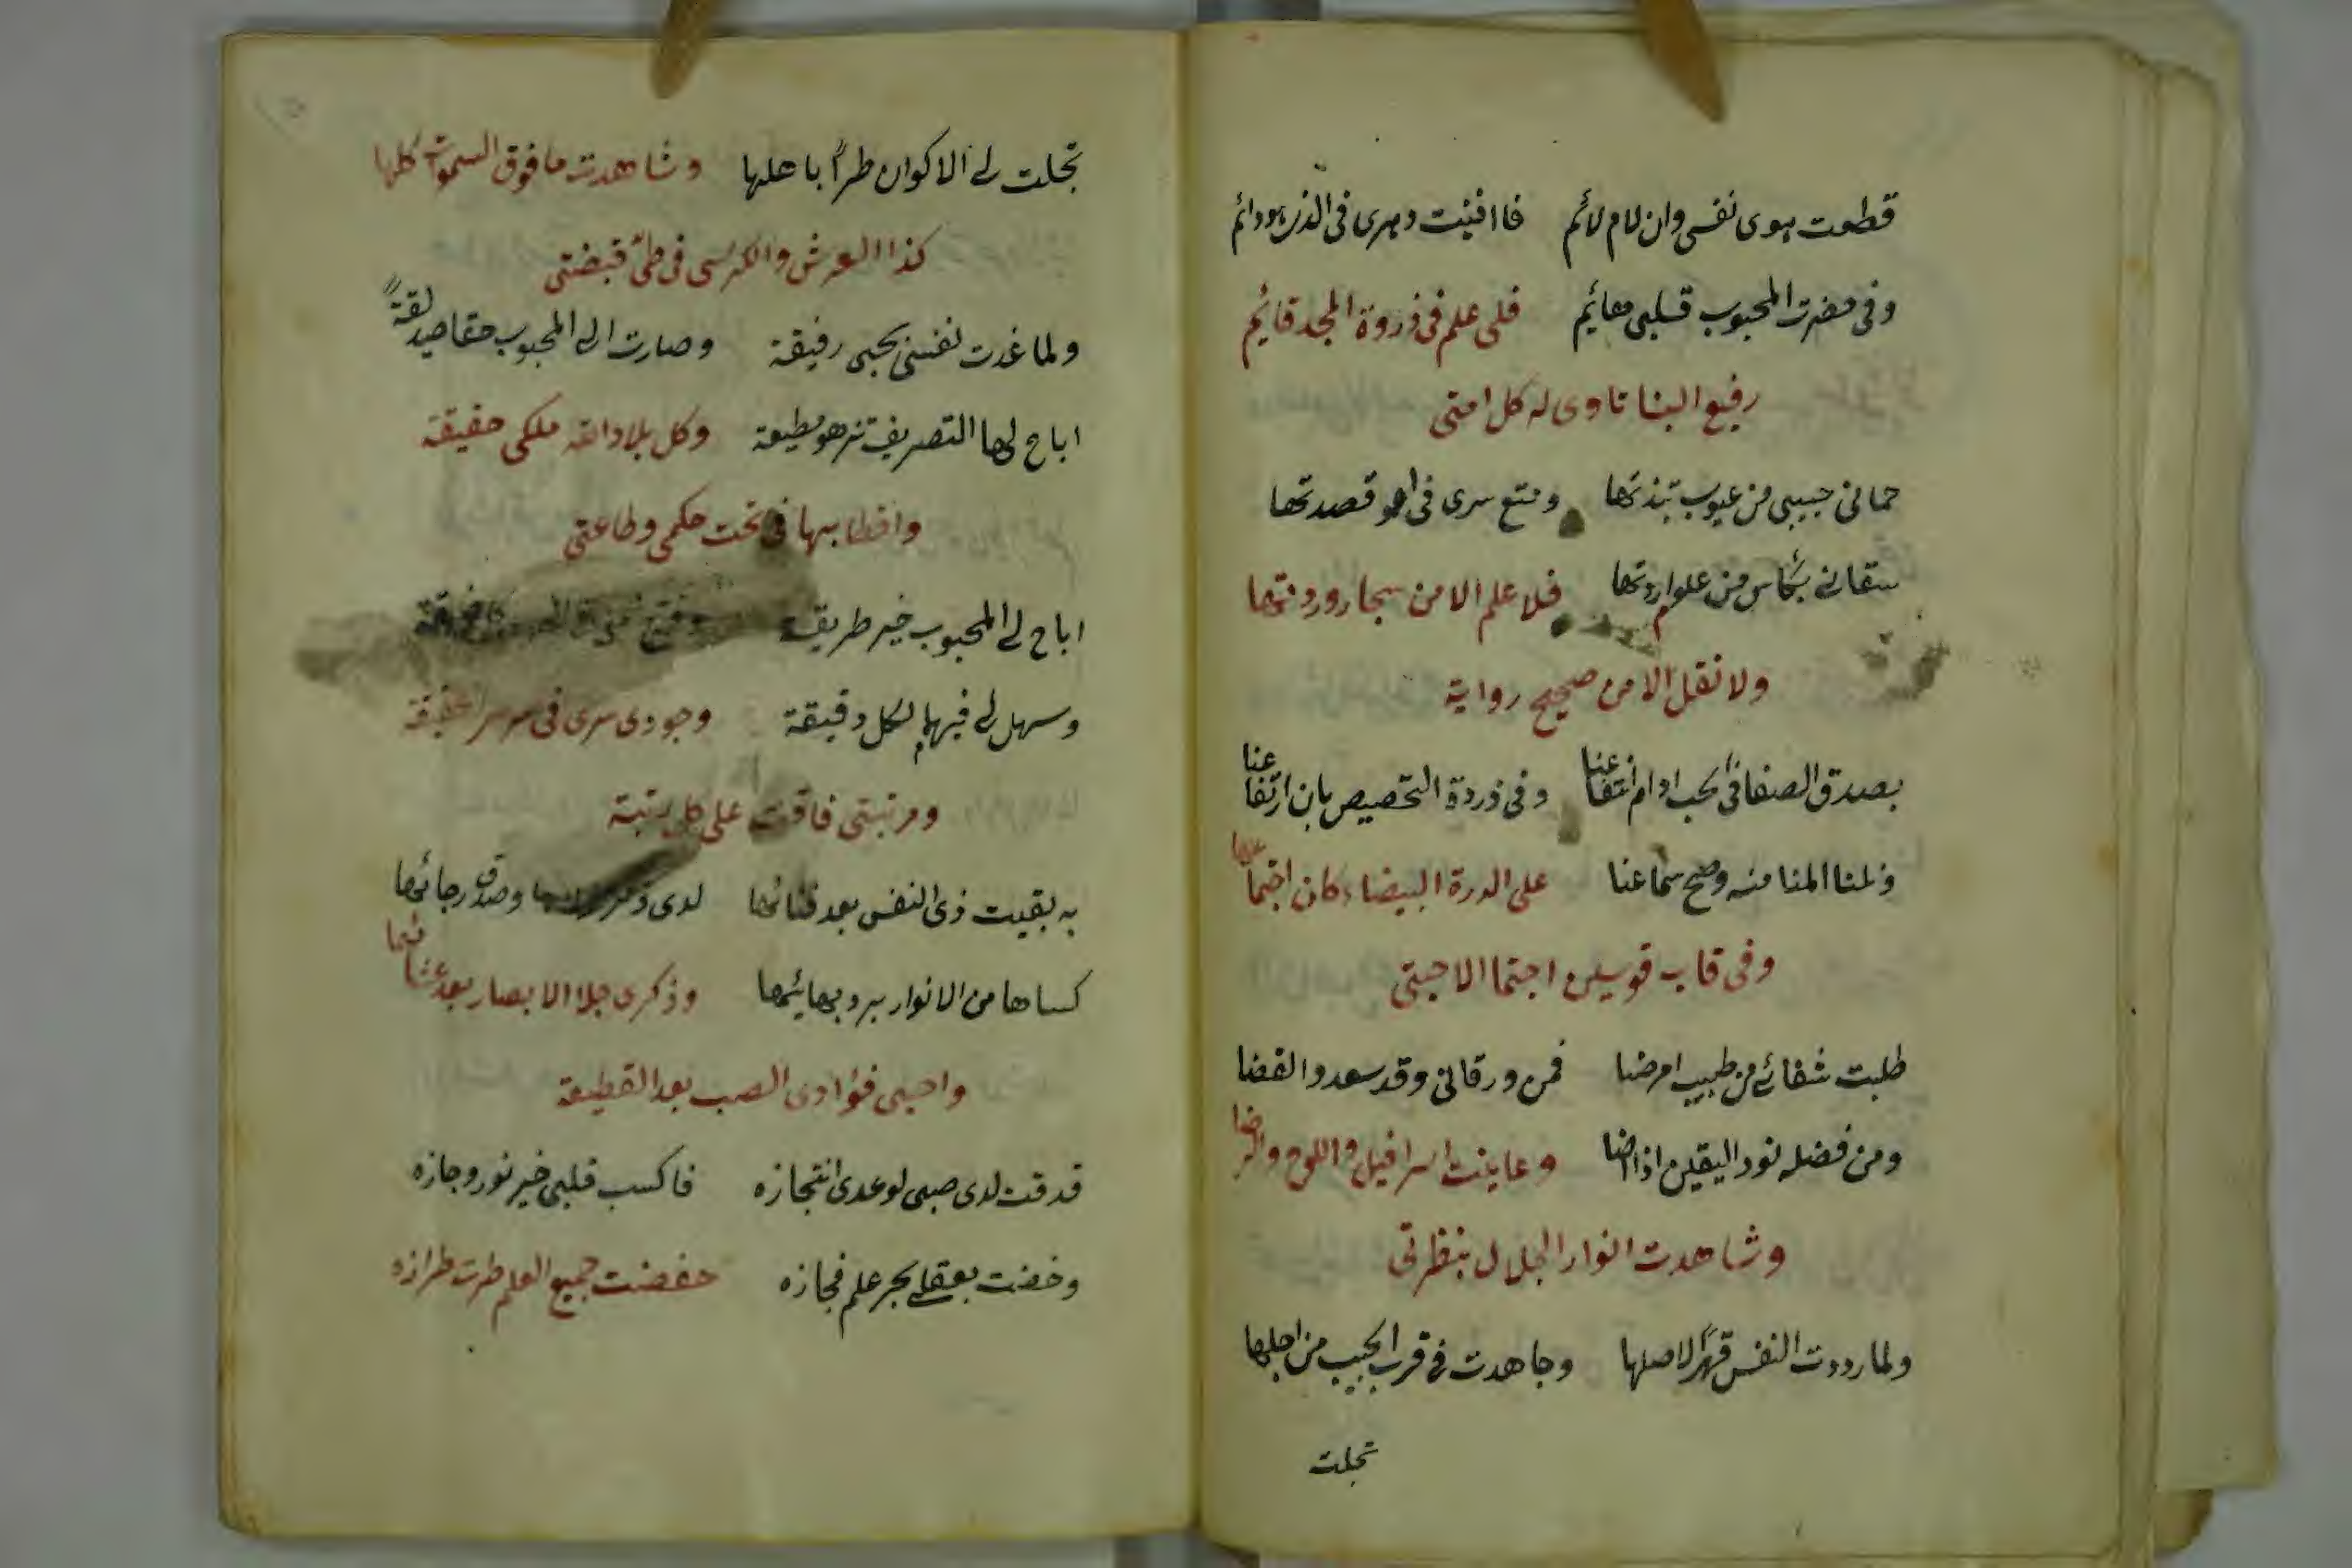 قطعت هوى نفسى وان لام لائم فا افنيت دهرى فى الذى هو دائم
وفى حضرت المحبوب قلبى هائيم فلى علم فى ذروة المجد قايم
رفيع البنا تاوى له كل امتى
حمانى حبيبى من عيوب نبذتها ومتع سرى فى قصدتها
سقانى بكاس من علوم اردتها فلا علم الا من بحار وردتها
ولا نقل الا من صحيح رواية
بصدق الصفا فى الحب ادام انتفاعنا وفى ذروة التخصيص بان ارتفاعنا
ونلنا المنا منه وصح سماعنا على الدرة البيضاء كان اجتماعنا
وفى قاب قوسين اجتما الاحبتى
طلبت شفائى من طبيب امرضا فمن ورقانى وقد سعدوا القضا
ومن فضله نور اليقين اذا اضا وعاينت اسرافيل واللوح والرضا
وشاهدت انوار الجلال بنظرتى
ولما رددت النفس قهرًا لاصلها وجاهدت فى قرب الحبيب من اجلها
تجلت
تجلت لى الاكوان طراً باهلها وشاهدت ما فوق السموات كلها
كذا العرش والكرسى فى طىّ قبضتى
ولما غدت نفسى بحبى رفيقة وصارت الى المحبوب حقا صديقةً
اباح لها التصريف مطيعة وكل بلاد الله ملكى حقيقة
واقطابها فى تحت حكمى وطاعتى
اباح لى المحبوب خير طريقة
وسهل لى فيها لكل دقيقة وجودى سرى فى سر سر الحقيقة
ومرتبتى فاقت على كل رتبة
به بقيت ذى النفس بعد فنائها لدى وصدق رجائها
كساها من الانوار برد بهائها وذكرى جلا الابصار بعد غشائها
واحيى فؤادى الصب بعد القطيعة
قد قت لدى صبى لوعدى انتجازه فاكسب قلبى خير نور وجازه
وخضت بعقلى بحر علم فجازه حفضت جميع العلم طرت طرازه